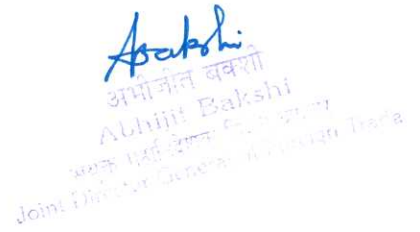 Abakshi
अभीजीत बक्शी
Abhijit Bakshi
Joint Director General of Foreign Trade